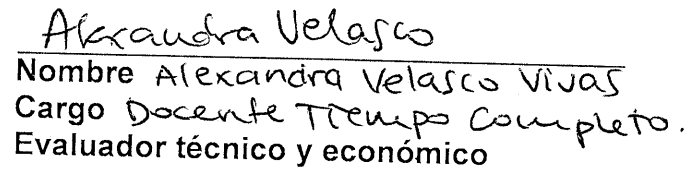 Alexandra Velasco
Nombre Alexandra Velasco Vivas
Cargo Docente Tiempo Completo.
Evaluador técnico y económico